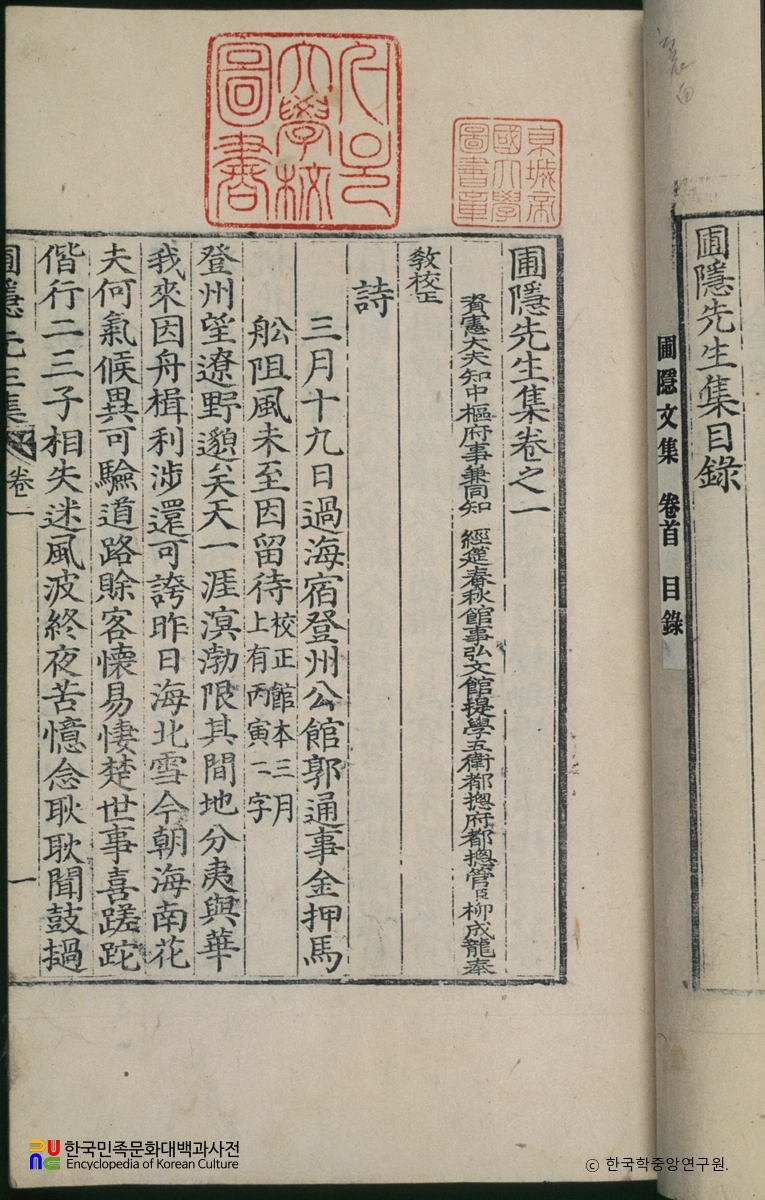 圃隱先生集目錄
圃隱文集 卷首 目錄
京城帝
國大學
圖書章
서울
大學校
圖書
圃隱先生集卷之一
資憲大夫知中樞府事兼同知 經筵春秋館事弘文館提學五衛都摠府都摠管臣柳成龍奉
敎校正
詩
三月十九日過海宿登州公館郭通事金押馬
舩阻風未至因留待 校正舘本三月
上有丙寅二字
登州望遼野邈矣天一涯溟渤限其間地分夷與華
我來因舟楫利涉還可誇昨日海北雪今朝海南花
夫何氣候異可驗道路賖客懷易悽楚世事喜蹉跎
偕行二三子相失迷風波終夜苦憶念耿耿聞鼓撾
圃隱先生集 卷一
一
한국민족문화대백과사전
Encyclopedia of Korean Culture
ⓒ 한국학중앙연구원.